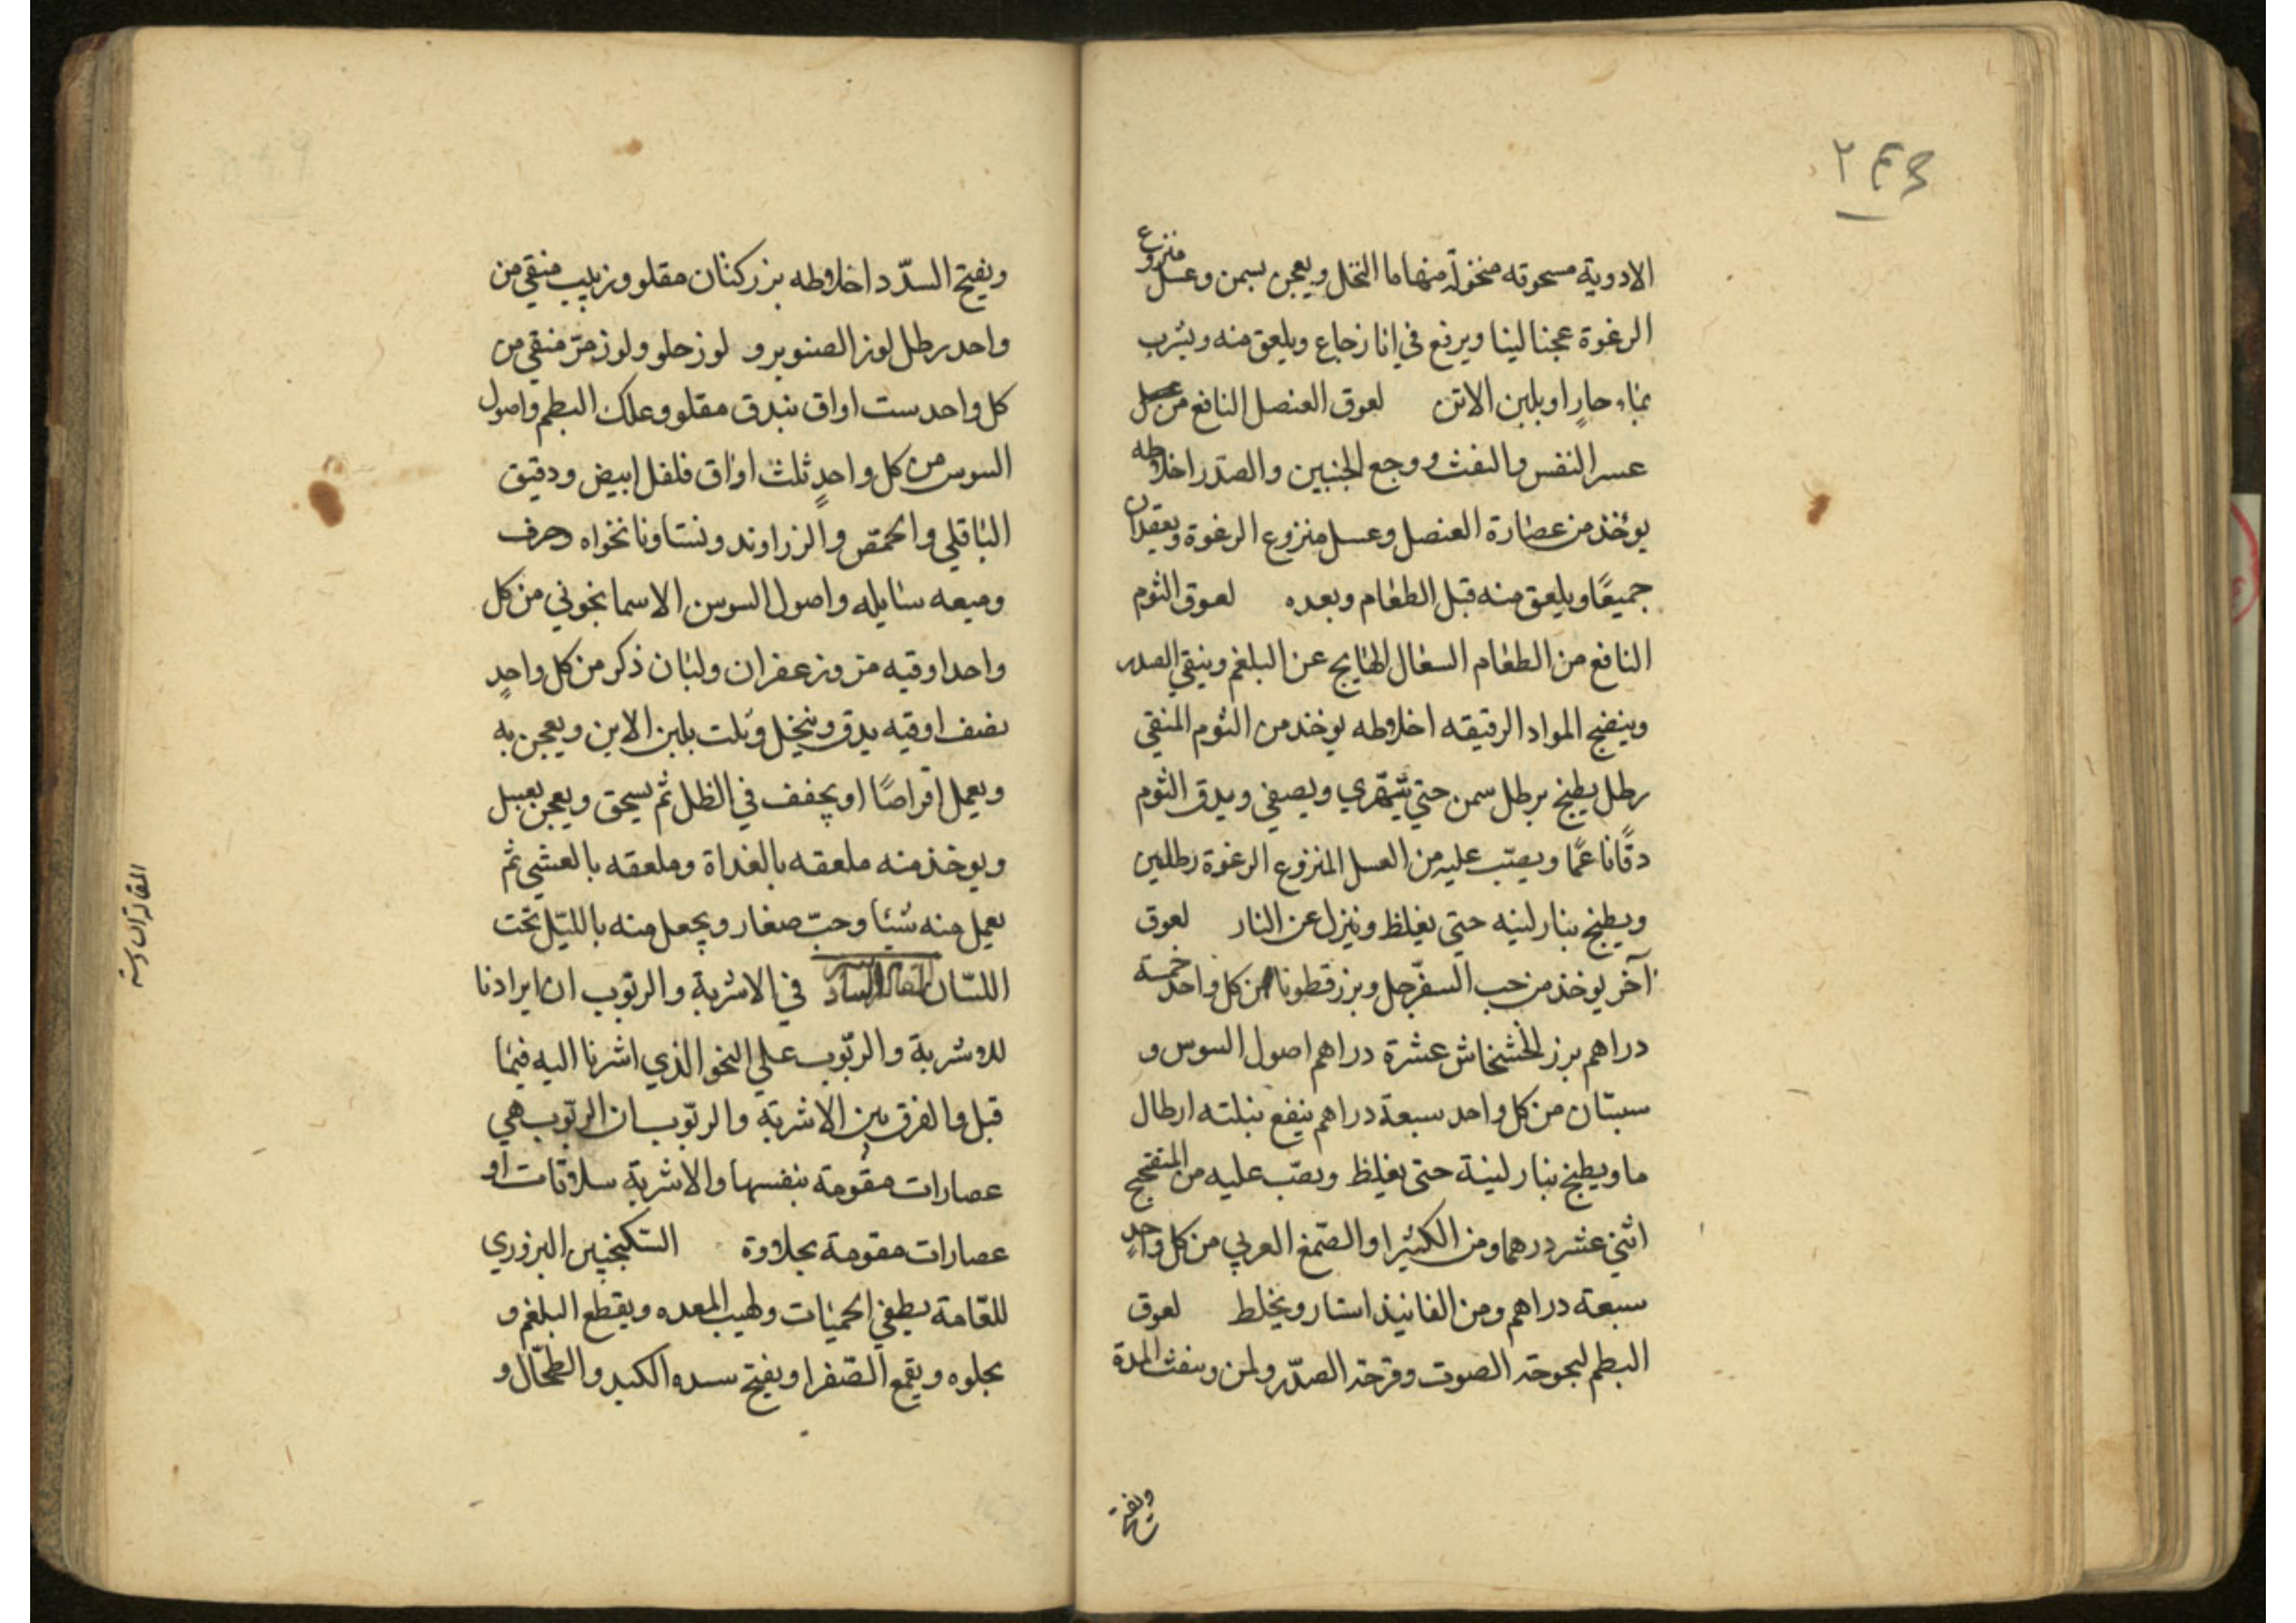 الادوية مسحوقه منخولة منها ما انتخل ويعجن بسمن وعسل منزوع
الرغوة عجنا لينا ويرفع في انا زجاج ويلعق منه ويشرب
بماء حارٍ او بلبن الاتن لعوق العنصل النافع من
عسر النفس والنفث ووجع الجنبين والصدر اخلاطه
يوخذ من عصارة العنصل وعسل منزوع الرغوة ويعقدان
جميعًا ويلعق منه قبل الطعام وبعده لعوق الثوم
النافع من الطعام السعال الهايج عن البلغم وينقي الصدر
وينضج المواد الرقيقه اخلاطه يوخذ من الثوم المنقي
رطل يطبخ برطل سمن حتي يتهرّي ويصفي ويدق الثوم
دقًا ناعمًا ويصبّ عليه من العسل المنزوع الرغوة رطلين
ويطبخ بنار لينه حتي يغلظ وينزل عن النار لعوق
آخر يوخذ من حب السفرجل وبزرقطونا من كل واحد خمسة
دراهم بزر الخشخاش عشرة دراهم اصول السوس و
سبستان من كل واحد سبعة دراهم ينقع بثلثه ارطال
ما ويطبخ بنار لينة حتى يغلظ ويصبّ عليه من
اثني عشر درهما ومن الكثيرا والصّمغ العربي من كل واحدٍ
سبعة دراهم ومن الفانيذ استار ويخلط لعوق
البطم لبحوحة الصوت وقرحة الصدّر ولمن وينفث المدة
ويفتح
ويفتح السدّد اخلاطه بزر كتان مقلو وزبيب منقي من
واحد رطل لوز الصنوبر و لوز حلو ولوز مرّ منقي من
كل واحد ست اواق بندق مقلو وعلك البطم واصول
السوس من كل واحدٍ ثلث اواق فلفل ابيض ودقيق
الباقلي والحمّص والزراوند ونشا ونانخواه وحرف
وميعه سايله واصول السوسن الاسمانجوني من كل
واحد اوقيه مرّ وزعفران ولبان ذكر من كل واحدٍ
نصف اوقيه يدق وينخل ويلت بلبن الاتن ويعجن به
ويعمل اقراصًا او يجفف في الظل ثم يسحق ويعجن بعسل
ويوخذ منه ملعقه بالغداة وملعقه بالعشي ثم
يعمل منه شيئا وحبّ صغار ويجعل منه بالليّل تحت
اللسّان المقالة السادسة في الاشربة والربّوب ان ايرادنا
للاشربة والربّوب علي النحو الذي اشرنا اليه فيما
قبل والفرق بين الاشربة والربّوب ان الربّوب هي
عصارات مقومة بنفسها والاشربة سلاقات او
عصارات مقومة بحلاوة السّكنجبين البزوري
للعّامة يطفي الحميّات ولهيب المعده ويقطع البلغم و
يجلوه ويقمع الصّفرا ويفتح سده الكبد والطحّال و
المقالة السادسة